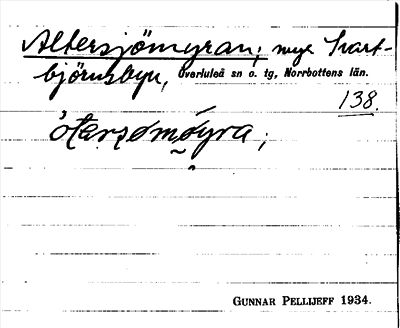 Altersjömyran; myr Svart-
björnsbyn, Överluleå sn o. tg, Norrbottens län.
138.
òtersømøyra;
GUNNAR PELLIJEFF 1934.